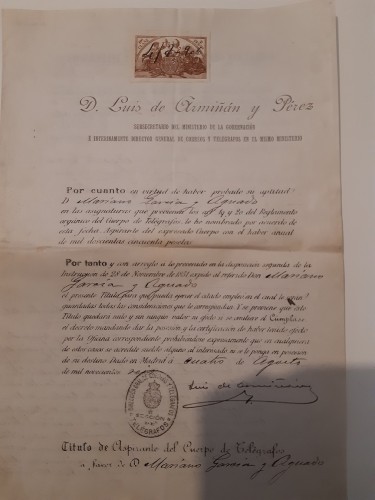 D. Luis de Armiñán y Pérez
SUBSECRETARIO DEL MINISTERIO DE LA GOBERNACIÓN
É INTERINAMENTE DIRECTOR GENERAL DE CORREOS Y TELÉGRAFOS EN EL MISMO MINISTERIO
Por cuanto en virtud de haber probado su aptitud
D Mariano García y Aguado
en las asignaturas que previenen los art 19 y 20 del Reglamento
orgánico del Cuerpo de Telégrafos, le ha nombrado por acuerdo de
esta fecha Aspirante del expresado Cuerpo con el haber anual
de mil doscientas cincuenta pesetas.
Por tanto y con arreglo á lo prevenido en la disposición segunda de la
Instrucción de 28 de Noviembre de 1851 expido al referido Don Mariano
García y Aguado
el presente Título para que pueda ejercer el citado empleo en el cual le serán
guardadas todas las consideraciones que le correspondan. Y se previene que este
Título quedará nulo y sin ningún valor ni efecto si se omitiere el Cúmplase
el decreto mandando dar la posesión y la certificación de haber tenido efecto
por la Oficina correspondiente prohibiéndose expresamente que en cualquiera
de estos casos se acredite sueldo alguno al interesado ni se le ponga en posesión
de su destino. Dado en Madrid á cuatro de Agosto
de mil novecientos
Luis de Armiñán
TELÉGRAFOS
Título de Aspirante del Cuerpo de Telégrafos
á favor de D. Mariano García y Aguado